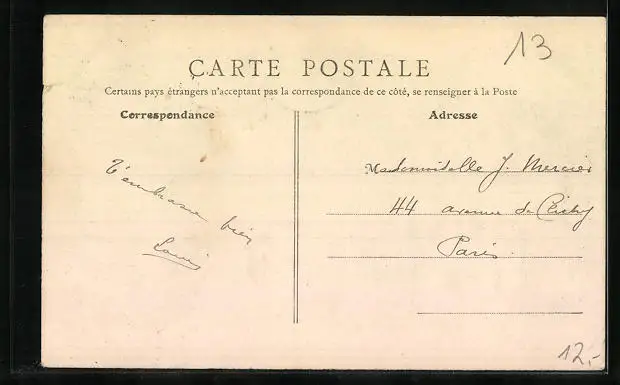 13
CARTE POSTALE
Certains pays étrangers n'acceptent pas la correspondance de ce côté, se renseigner à la Poste
Correspondance
Adresse
T'embrasse bien
Louis
Mademoiselle J. Mercier
44 avenue de Clichy
Paris
12.-